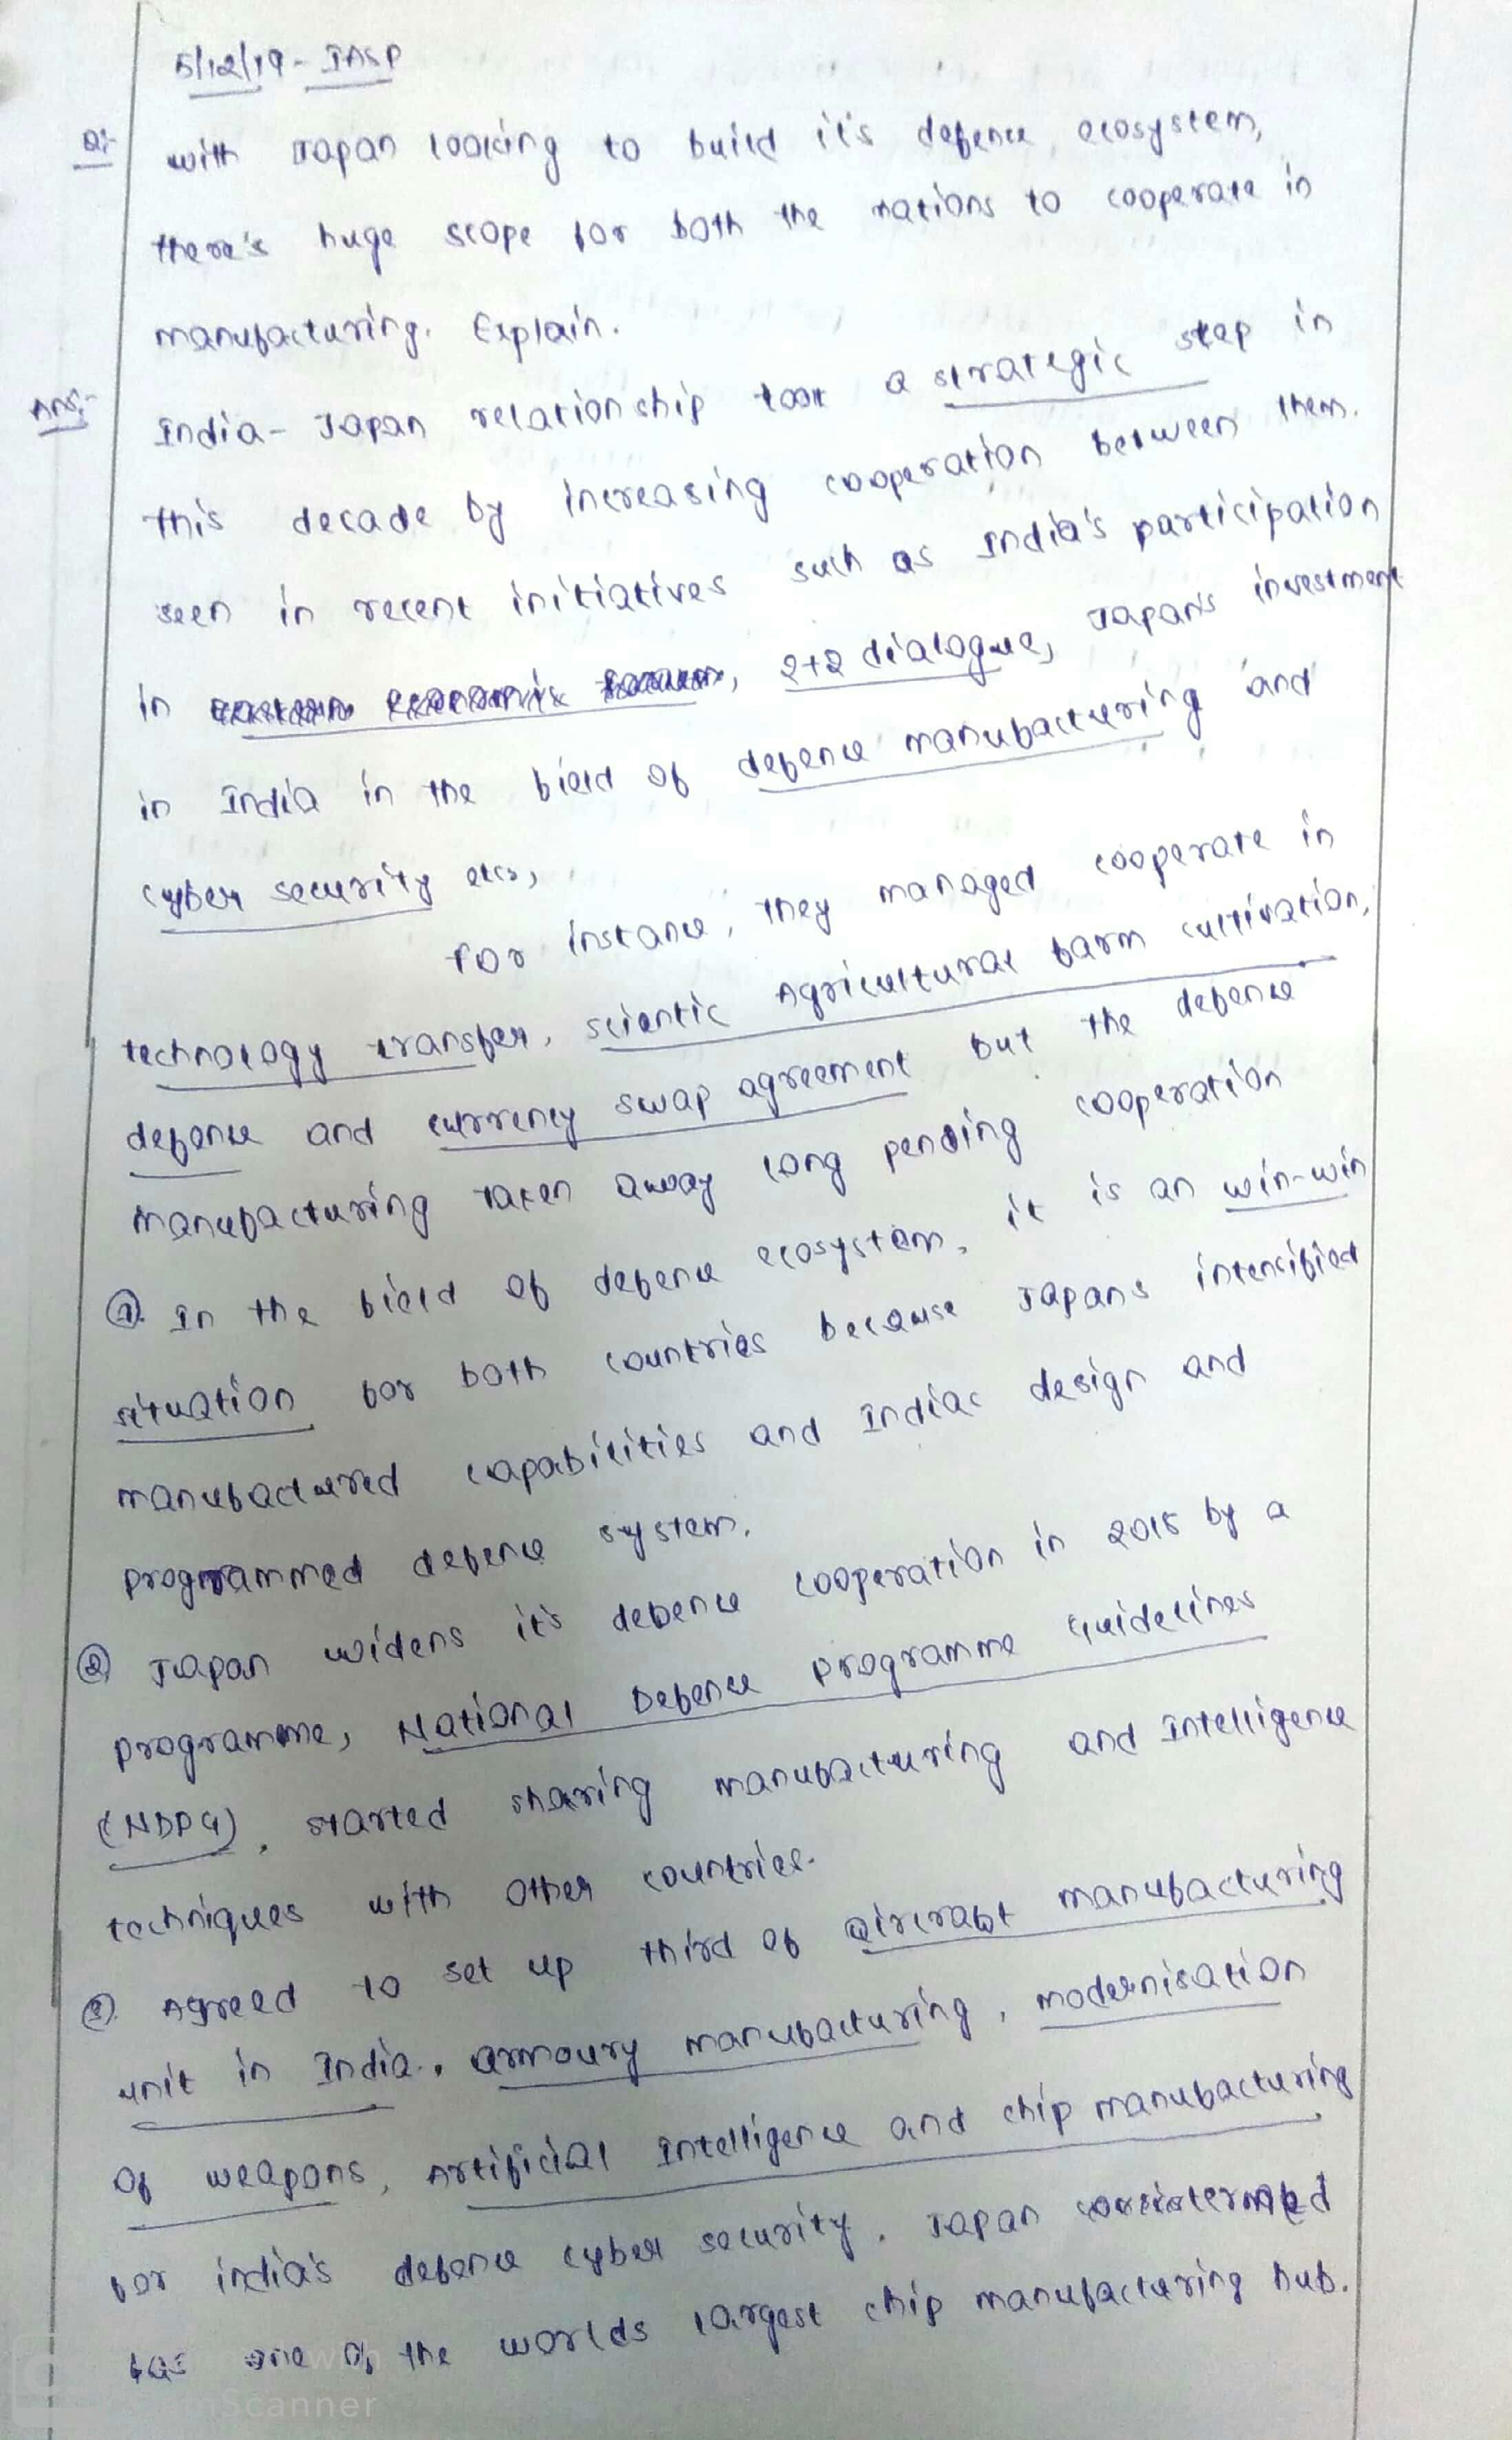 5/12/19 - INSP
Q:- with Japan looking to build it's defence ecosystem,
there's huge scope for both the nations to cooperate in
manufacturing. Explain.
Ans:- India - Japan relationship took a strategic step in
this decade by increasing cooperation between them.
seen in recent initiatives such as India's participation
in eastern economic forum, 2+2 dialogue, Japan's investment
in India in the field of defence manufacturing and
cyber security etc,
For instance, they managed cooperate in
technology transfer, scientic Agricultural farm cultivation,
defence and currency swap agreement but the defence
manufacturing taken away long pending cooperation
① In the field of defence ecosystem, it is an win-win
situation for both countries because Japans intensified
manufactured capabilities and Indias design and
programmed defence system.
② Japan widens it's defence cooperation in 2018 by a
programme, National Defence programme Guidelines
(NDPG), started sharing manufacturing and Intelligence
techniques with other countries.
③ Agreed to set up third of aircraft manufacturing
unit in India, armoury manufacturing, modernisation
of weapons, Artificial Intelligence and chip manufacturing
for india's defence cyber security. Japan
one of the worlds largest chip manufacturing hub.
Scanner